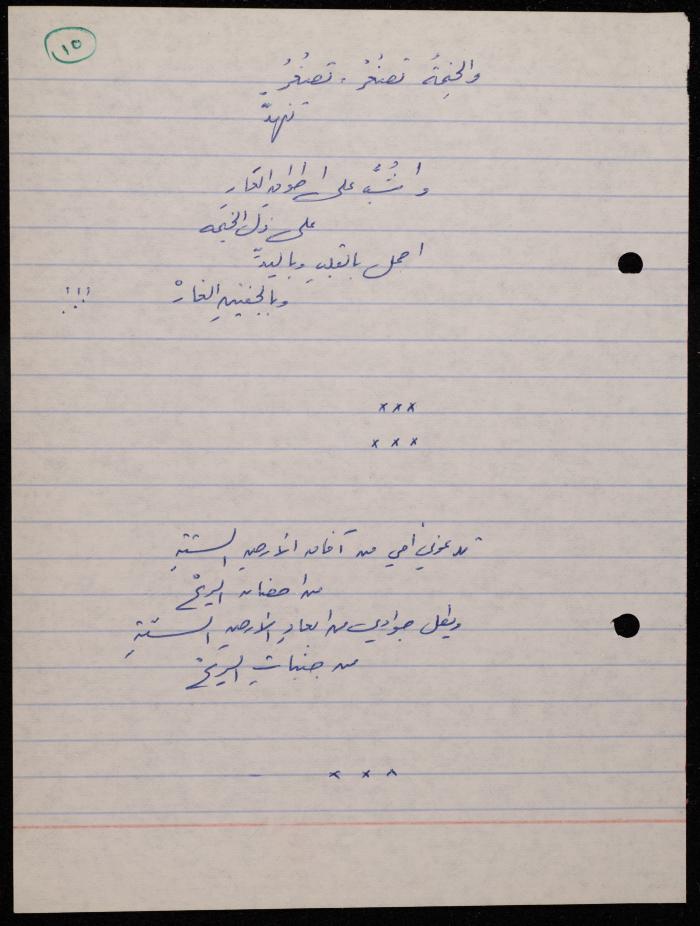 ١٥
والخيمةُ تصغُرُ، تصغُرُ
تنهدّ
وأشبُّ على أطواق العارِ
على ذلّ الخيمة
احمل بالقلبِ وباليدّ
وبالجفنينِ الغارْ !!!
×××
× × ×
تدعوني أمي من آفاق الأرضِ الستةِ
من أحضان الريحْ
ويطل جوادي من أبعادِ الأرضِ الستةِ
من جنباتِ الريحْ
× × ×